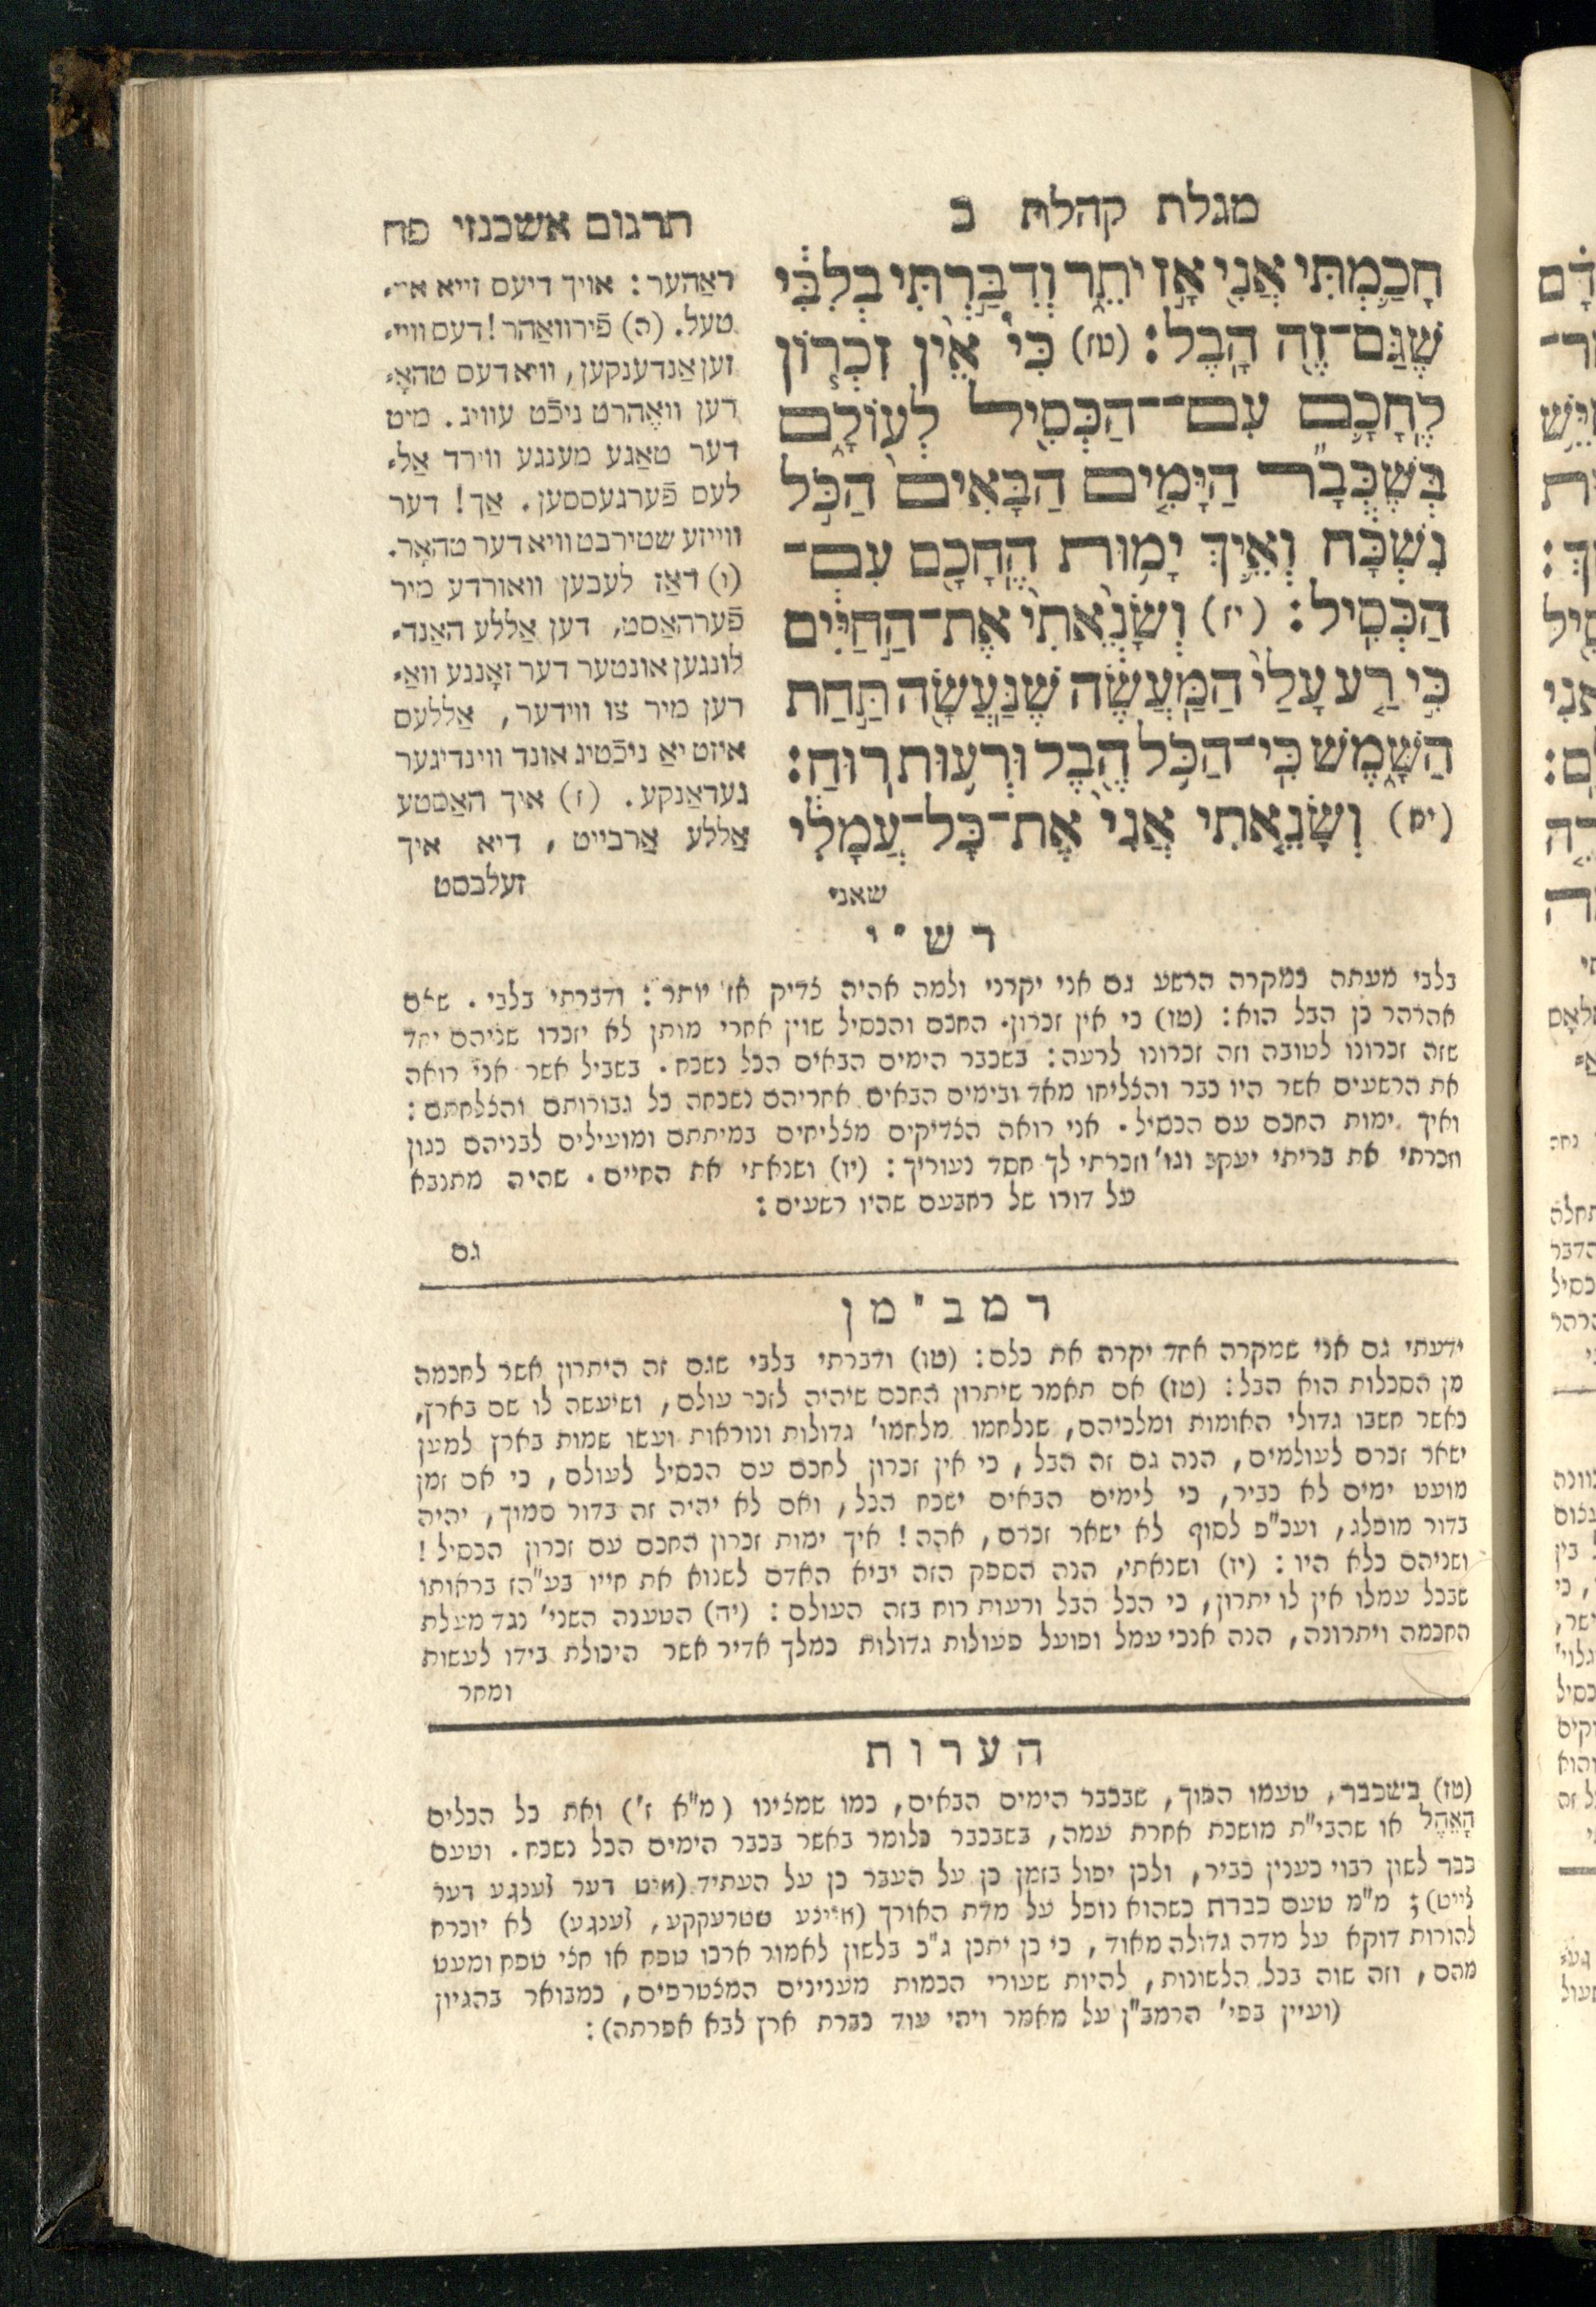 מגלת קהלת ב
חָכַ֧מְתִּי אֲנִ֛י אָ֥ז יֹתֵ֖ר וְדִבַּ֣רְתִּי בְלִבִּ֔י
שֶׁגַּם־זֶ֖ה הָֽבֶל׃ (טז) כִּי֩ אֵ֨ין זִכְר֧וֹן
לֶחָכָ֛ם עִֽם־הַכְּסִ֖יל לְעוֹלָ֑ם
בְּשֶׁכְּבָ֞ר הַיָּמִ֤ים הַבָּאִים֙ הַכֹּ֣ל
נִשְׁכָּ֔ח וְאֵ֛יךְ יָמ֥וּת הֶחָכָ֖ם עִֽם־
הַכְּסִֽיל׃ (יז) וְשָׂנֵ֙אתִי֙ אֶת־הַ֣חַיִּ֔ים
כִּ֣י רַ֤ע עָלַי֙ הַֽמַּעֲשֶׂ֔ה שֶׁנַּעֲשָׂ֖ה תַּ֣חַת
הַשָּׁ֑מֶשׁ כִּֽי־הַכֹּ֥ל הֶ֖בֶל וּרְע֥וּת רֽוּחַ׃
(יח) וְשָׂנֵ֤אתִי אֲנִי֙ אֶת־כָּל־עֲמָלִ֔י
שאני
תרגום אשכנזי פח
ראַהער : אויך דיעס זייא
טעל. (ה) פֿירוואַהר! דעס ווייַ
זען אַנדענקען, וויא דעס טהאָ
רען וואֶהרט ניכֿט עוויג. מיט
דער טאַגע מענגע ווירד אַל
לעס פֿערגעססען. אַך! דער
ווייזע שטירבט וויא דער טהאָר.
(ו) דאַז לעבען וואורדע מיר
פֿערהאַסט, דען אַללע האַנד
לונגען אונטער דער זאָננע וואַ
רען מיר צו ווידער, אַללעס
איזט יאַ ניכֿטיג אונד ווינדיגער
געדאַנקע. (ז) איך האַסטע
אַללע אַרבייט, דיא איך
זעלבסט
רש״י
בלבי מעתה כמקרה הרשע גם אני יקרני ולמה אהיה צדיק אז יותר : ודברתי בלבי. שאם
אהרהר כן הבל הוא : (טז) כי אין זכרון. החכם והכסיל שוין אחרי מותן לא יזכרו שניהם יחד
שזה זכרונו לטובה וזה זכרונו לרעה : בשכבר הימים הבאים הכל נשכח. בשביל אשר אני רואה
את הרשעים אשר היו כבר והצליחו מאד ובימים הבאים אחריהם נשכחה כל גבורותם והצלחתם :
ואיך ימות החכם עם הכסיל. אני רואה הצדיקים מצליחים במיתתם ומועילים לבניהם כגון
וזכרתי את בריתי יעקב וגו׳ וזכרתי לך חסד נעוריך : (יז) ושנאתי את החיים. שהיה מתנבא
על דורו של רחבעם שהיו רשעים :
גם
רמב״מן
ידעתי גם אני שמקרה אחד יקרה את כלם : (טו) ודברתי בלבי שגם זה היתרון אשר לחכמה
מן הסכלות הוא הבל : (טז) אם תאמר שיתרון החכם שיהיה לזכר עולם, ושיעשה לו שם בארץ,
כאשר חשבו גדולי האומות ומלכיהם, שנלחמו מלחמו׳ גדולות ונוראות ועשו שמות בארץ למען
ישאר זכרם לעולמים, הנה גם זה הבל, כי אין זכרון לחכם עם הכסיל לעולם, כי אם זמן
מועט ימים לא כביר, כי לימים הבאים ישכח הכל, ואם לא יהיה זה בדור סמוך, יהיה
בדור מופלג, ועכ״פ לסוף לא ישאר זכרם, אהה! איך ימות זכרון החכם עם זכרון הכסיל!
ושניהם כלא היו : (יז) ושנאתי, הנה הספק הזה יביא האדם לשנוא את חייו בע״הז בראותו
שבכל עמלו אין לו יתרון, כי הכל הבל ורעות רוח בזה העולם : (יח) הטענה השני׳ נגד מעלת
החכמה ויתרונה, הנה אנכי עמל ופועל פעולות גדולות כמלך אדיר אשר היכולת בידו לעשות
ומחר
הערות
(טז) בשכבר, טעמו הפוך, שבכבר הימים הבאים, כמו שמצינו (מ״א ז׳) ואת כל הכלים
הָאֵהֶל או שהבי״ת מושכת אחרת עמה, בשבכבר כלומר באשר בכבר הימים הכל נשכח. וטעם
כבר לשון רבוי כענין כביר, ולכן יפול בזמן כן על העבר כן על העתיד (מיט דער לענגע דער
צייט); מ״מ טעם כברת כשהוא נופל על מדת האורך (איינע שטרעקקע, לענגע) לא יוכרח
להורות דוקא על מדה גדולה מאוד, כי כן יתכן ג״כ בלשון לאמור ארכו טפח או חצי טפח ומעט
מהם, וזה שוה בכל הלשונות, להיות שעורי הכמות מענינים המצטרפים, כמבואר בהגיון
(ועיין בפי׳ הרמב״ן על מאמר ויהי עוד כברת ארץ לבא אפרתה) :